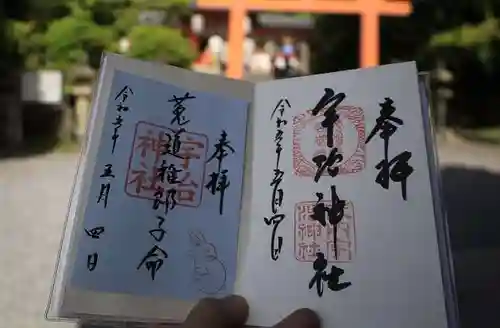 奉拝
宇治神社
令和五年五月四日
奉拝
菟道稚郎子命
宇治
神社
令和五年五月四日